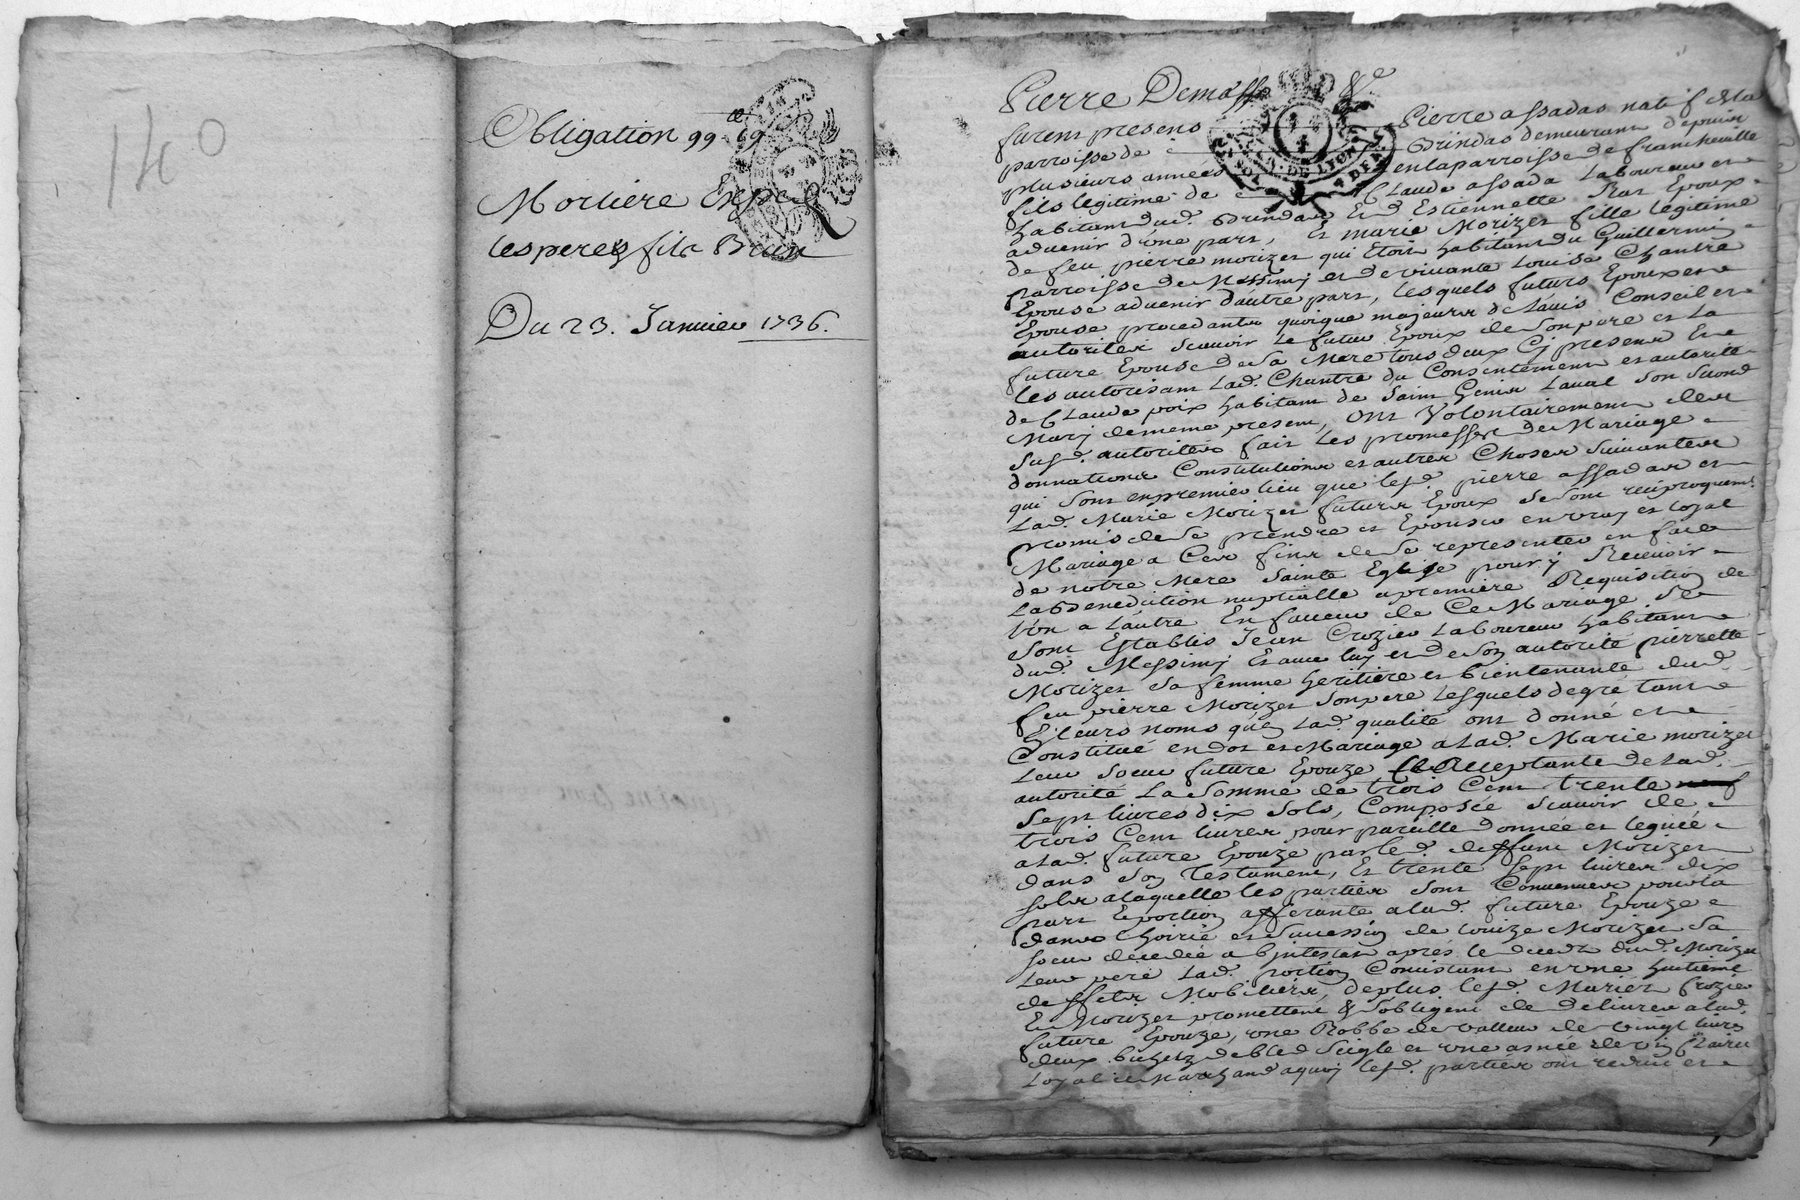 140
Obligation 99 ## 19
Mortiere
les pere & fils Brun
Du 23. Janvier 1736.
Pierre
furent presens Pierre assadas natif de la
parroisse de Brindas demeurant depuis
plusieurs années en la parroisse de francheville
fils legitime de Claude assada Laboureur et
habitant dud. Brindas Et d' Estiennette Bar Epoux
advenir d'une part, Et marie Morizet fille legitime
de feu pierre morizet qui Etoit habitant du Guillermin
parroisse de Messimj et de vivante Louise Chantre
Epouse advenir d'autre part, lesquels futurs Epoux et
Epouse procedants quoique majeurs de l'avis Conseil et
autorites scavoir le futur Epoux de son pere et La
future Epouse de Sa Mere tous deux Cj presens Et
les autorisant Lad. Chantre du Consentement et autorité
de Claude poix habitant de Saint Genis Laval son second
Marj de meme present, Ont Volontairement des
susd. autorités fait Les promesses de Mariage
donnations Constitutions et autres Choses suivantes
qui sont en premier lieu que lesd. pierre assadas et
Lad. Marie Morizet futurs Epoux se sont reciproquemt.
promis de se prendre et Epouser en vraj et loyal
Mariage a Ces fins de se representer en face
de notre Mere Sainte Eglise pour y Recevoir
La benediction nuptialle a premiere Requisition de
l'un a L'autre En faveur de Ce Mariage se
sont Establis Jean Crozier Laboureur habitant
dud. Messimj Et avec luj et de son autorité pierrette
Morizet sa femme heritiere et bientenante dud.
feu pierre Morizet son pere Lesquels de gré tant
En leurs noms qu'en Lad. qualité ont donné et
Constitué en dot et Mariage a Lad. Marie morizet
Leur soeur future Epouze Cy Acceptante de Lad.
autorité La Somme de trois Cent trente
Sept livres dix Sols, Composée scavoir de
trois Cent livres pour pareille donnée et leguée
a Lad. future Epouze par led. deffunt Morizet
dans son Testament, Et trente sept livres dix
sols a laquelle les parties sont Convenues pour la
part Et portion afferante a lad. future Epouze
dans L'hoirie et Succession de Louize Morizet Sa
soeur decedée abjntestat aprés le deces dud. Morizet
Leur pere Lad. portion Consistant en une huitieme
d'effets Mobiliers, de plus lesd. Mariés Crozier
Et Morizet promettent & s'obligent de delivrer a lad.
future Epouze, une Robbe de valleur de vingt livres
deux bichetz de bled Seigle et une asnée de vin Clairet
Loyal et Marchand a quoj lesd. parties ont reduit et